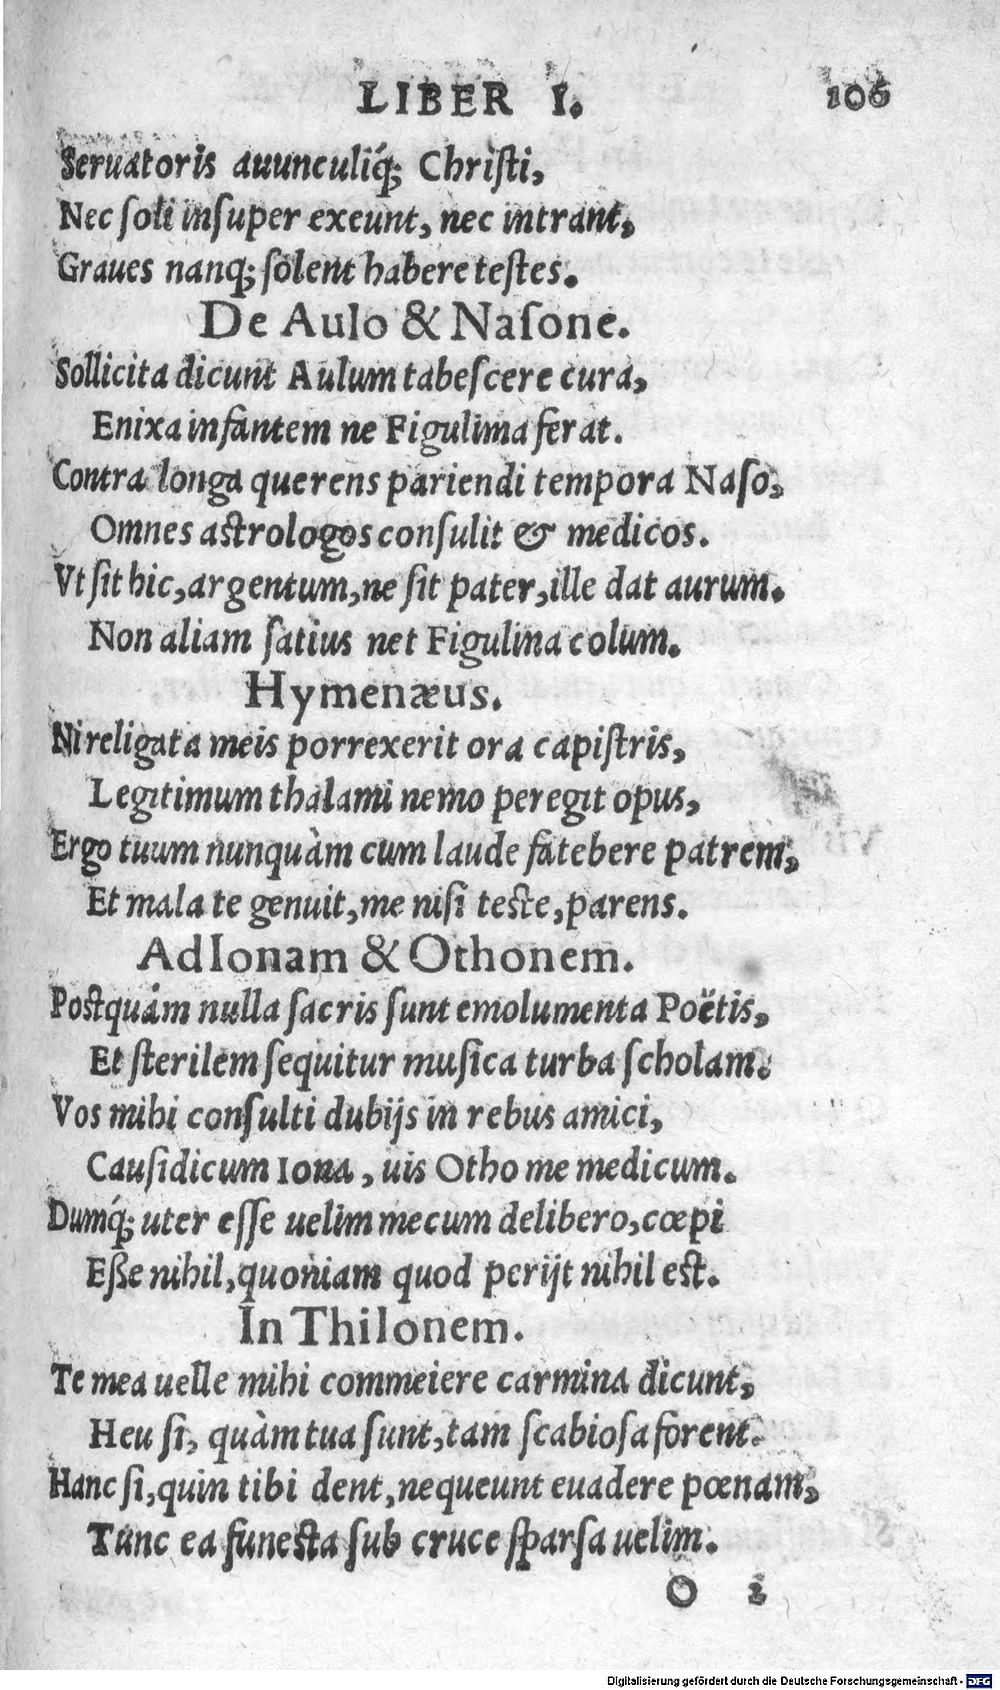 LIBER I. 106
Seruatoris auunculiq́; Christi,
Nec soli insuper exeunt, nec intrant,
Graues nanq; solent habere testes.
De Aulo & Nasone.
Sollicita dicunt Aulum tabescere cura,
Enixa infantem ne Figulima ferat.
Contra longa querens pariendi tempora Naso,
Omnes astrologos consulit & medicos.
Vt sit hic, argentum, ne sit pater, ille dat aurum.
Non aliam satius net Figulina colum.
Hymenæus.
Ni religata meis porrexerit ora capistris,
Legitimum thalami nemo peregit opus,
Ergo tuum nunquàm cum laude fatebere patrem,
Et mala te genuit, me nisi teste, parens.
Ad Ionam & Othonem.
Postquàm nulla sacris sunt emolumenta Poëtis,
Et sterilem sequitur musica turba scholam.
Vos mihi consulti dubijs in rebus amici,
Causidicum Iona, uis Otho me medicum.
Dumq́; uter esse uelim mecum delibero, cœpi
Esse nihil, quoniam quod perijt nihil est.
In Thilonem.
Te mea uelle mihi commeiere carmina dicunt,
Heu si, quàm tua sunt, tam scabiosa forent.
Hanc si, quin tibi dent, nequeunt euadere pœnam,
Tunc ea funesta sub cruce sparsa uelim.
O 2
Digitalisierung gefördert durch die Deutsche Forschungsgemeinschaft - DFG